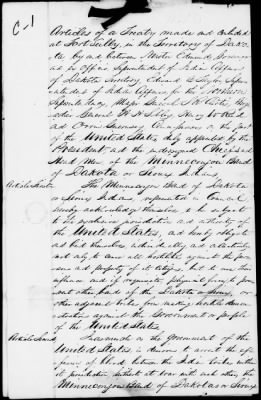 C-1
Articles of a Treaty made and concluded
at Fort Sully, in the Territory of Dako-
ta, by and between Newton Edmunds, Governor
and ex officio Superintendent of Indian Affairs
of Dakota Territory, Edward B. Taylor, Superin-
tendent of Indian Affairs for the Northern
Superintendency, Major General S. R. Curtis, Brig-
adier General H. H. Sibley, Henry W. Reed
and Orrin Guernsey, Commissioners on the part
of the United States, duly appointed by the
President, and the undersigned Chiefs and
Head Men of the Minneconjou Band
of Dakota or Sioux Indians.
Article First
The Minneconjou Band of Dakota
or Sioux Indians, represented in Council,
hereby acknowledge themselves to be subject
to the exclusive jurisdiction and authority of
the United States, and hereby obligate
and bind themselves individually and collectively
not only to cease all hostilities against the per-
sons and property of its citizens, but to use their
influence and, if requisite, physical force, to pre-
vent other bands of the Dakota or Sioux, or
other adjacent tribes from making hostile demon-
strations against the Government or people
of the United States.
Article Second
Inasmuch as the Government of the
United States is desirous to arrest the eff-
usion of blood between the Indian tribes within
its jurisdiction hitherto at war with each other, the
Minneconjou Band of Dakotas or Sioux